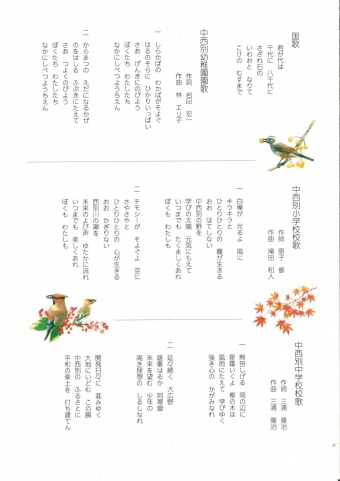 国歌
君が代は
千代に 八千代に
さざれ石の
いわおと なりて
こけの むすまで
中西別幼稚園園歌
作詞 岩田 宏一
作曲 林 エリ子
一 しらかばの わかばがそよぐ
はるのそらに ひかりいっぱい
さあ げんきにのびよう
ぼくたち わたしたち
なかにしべつようちえん
二 からまつの えだになるかぜ
のをはしる ふぶきにたえて
さあ つよくのびよう
ぼくたち わたしたち
なかにしべつようちえん
中西別小学校校歌
作詞 原子 修
作曲 滝田 和人
一 白樺が 光るよ 風に
キラキラと
ひとりひとりの 瞳が生きる
おお はてしない
中西別の野を
学びの太陽 元気にもえて
いつまでも たくましくあれ
ぼくも わたしも
二 チモシーが そよぐよ 空に
さやさやと
ひとりひとりの 心が生きる
おお かぎりない
西別川の潮を
未来のよび声 ゆたかに流れ
いつまでも 美しくあれ
ぼくも わたしも
中西別中学校校歌
作詞 三浦 隆治
作曲 三浦 隆治
一 熊笹しげる 岡の辺に
星霜いくよ 楢の木は
風雨にたえて 学びゆく
強き心の かがみなれ
二 延々続く 大広野
雄峯はるか 阿寒嶺
未来を望む 少年の
高き理想の しるしなれ
開発日々に 進みゆく
大地にいどむ この腕
中西別の ふるさとに
平和の楽土を 打ち建てん